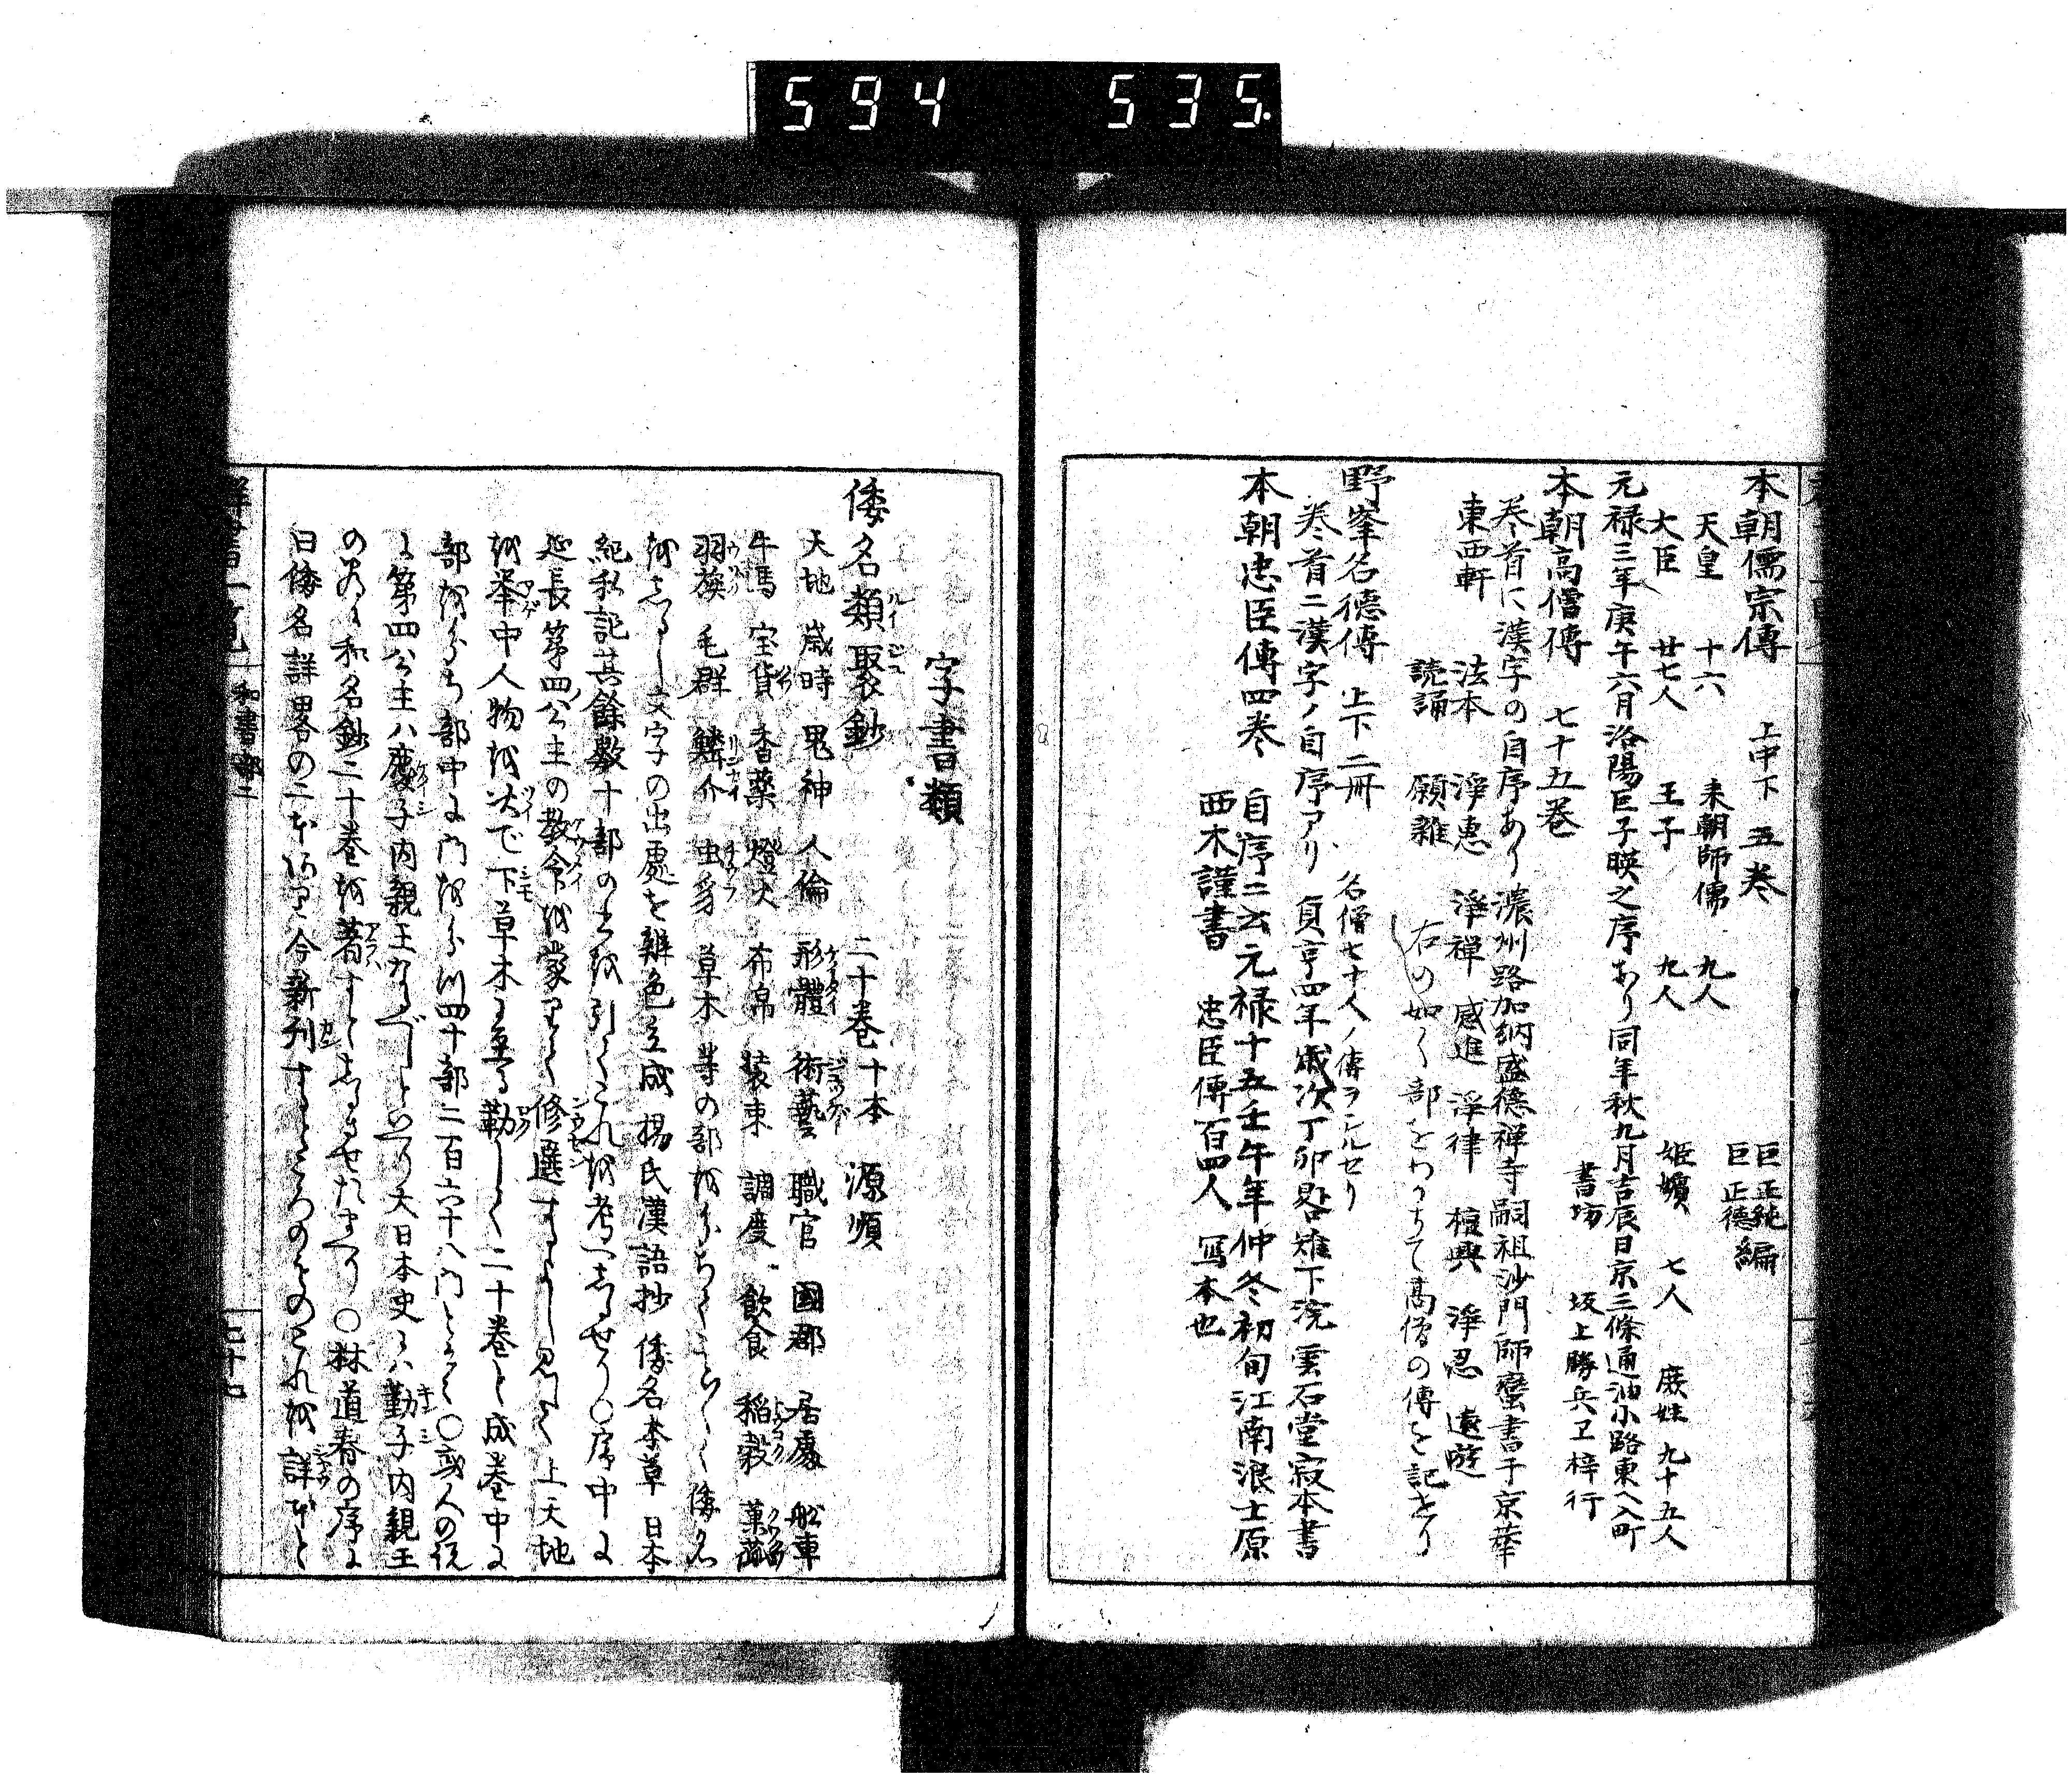 594 535.
本朝儒宗傳 上中下 五巻 巨正純 巨正德 編
天皇 十六 来朝師儒 九人
大臣 廿七人 王子 九人 姫嬪 七人 庶姓 九十五人
元禄三年庚午六月洛陽巨子暎之序あり同年秋九月吉辰日京三條通油小路東ヘ入町
書坊 坂上勝兵ヱ梓行
本朝高僧傳 七十五巻
巻首に漢字の自序あり濃州路加納盛德禅寺嗣祖沙門師蠻書于京華
東西軒 法本 淨惠 淨禅 感進 淨律 檀興 淨忍 遠遊
読誦 願雑 右の如く部をわかちて高僧の傳を記せり
野峯名德傳 上下二冊 名僧七十人ノ傳ヲシルセリ
巻首ニ漢字ノ自序アリ 貞亨四年歳次丁卯 下浣 雲石堂寂本書
本朝忠臣傳四巻 自序ニ云元禄十五壬午年仲冬初旬江南浪士原
西木謹書 忠臣傳百四人 写本也
字書類
倭名類聚鈔 二十巻十本 源順
天地 歳時 鬼神 人倫 形體 術藝 職官 國郡 居處 舩車
牛馬 宝貨 香薬 燈火 布帛 装束 調度 飲食 稲穀 菓蓏
羽族 毛群 鱗介 虫豸 草木 等の部をわかちてことごとく倭名
をしるし文字の出處を辨色立成 楊氏漢語抄 倭名本草 日本
紀私記其餘数十部の書を引てこれを考へしるせり○序中に
延長第四公主の教令を蒙りて修選するよし見ゆ 上天地
を挙中人物を次で下草木に至る勒して二十巻と成巻中に
部をわかち部中に門をわかつ四十部二百六十八門とす○或人の説
に第四公主ハ慶子内親王なるべしといへり大日本史にハ勤子内親王
の為に和名鈔二十巻を著すとしるさせたまへり ○林道春の序に
曰倭名詳畧の二本あり 今新刊するところのものこれを詳本と
群書一覧 和書部二 七十七